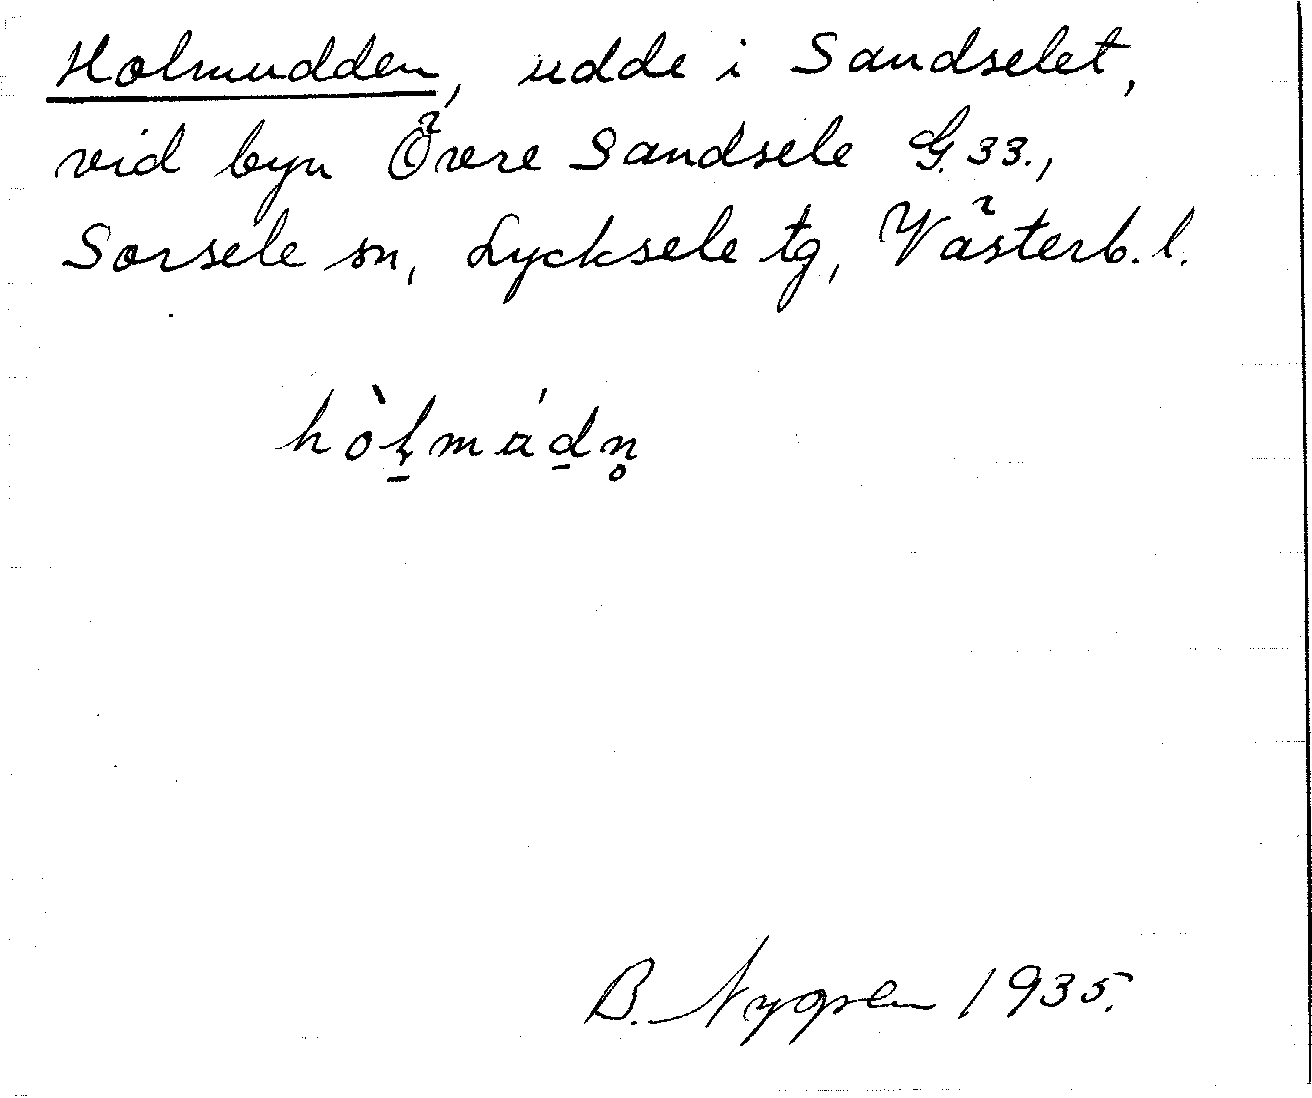 Holmudden, udde i Sandselet,
vid byn Övre Sandsele G. 33.,
Sorsele sn, Lycksele tg, Västerb. l.
B. Nygren 1935.